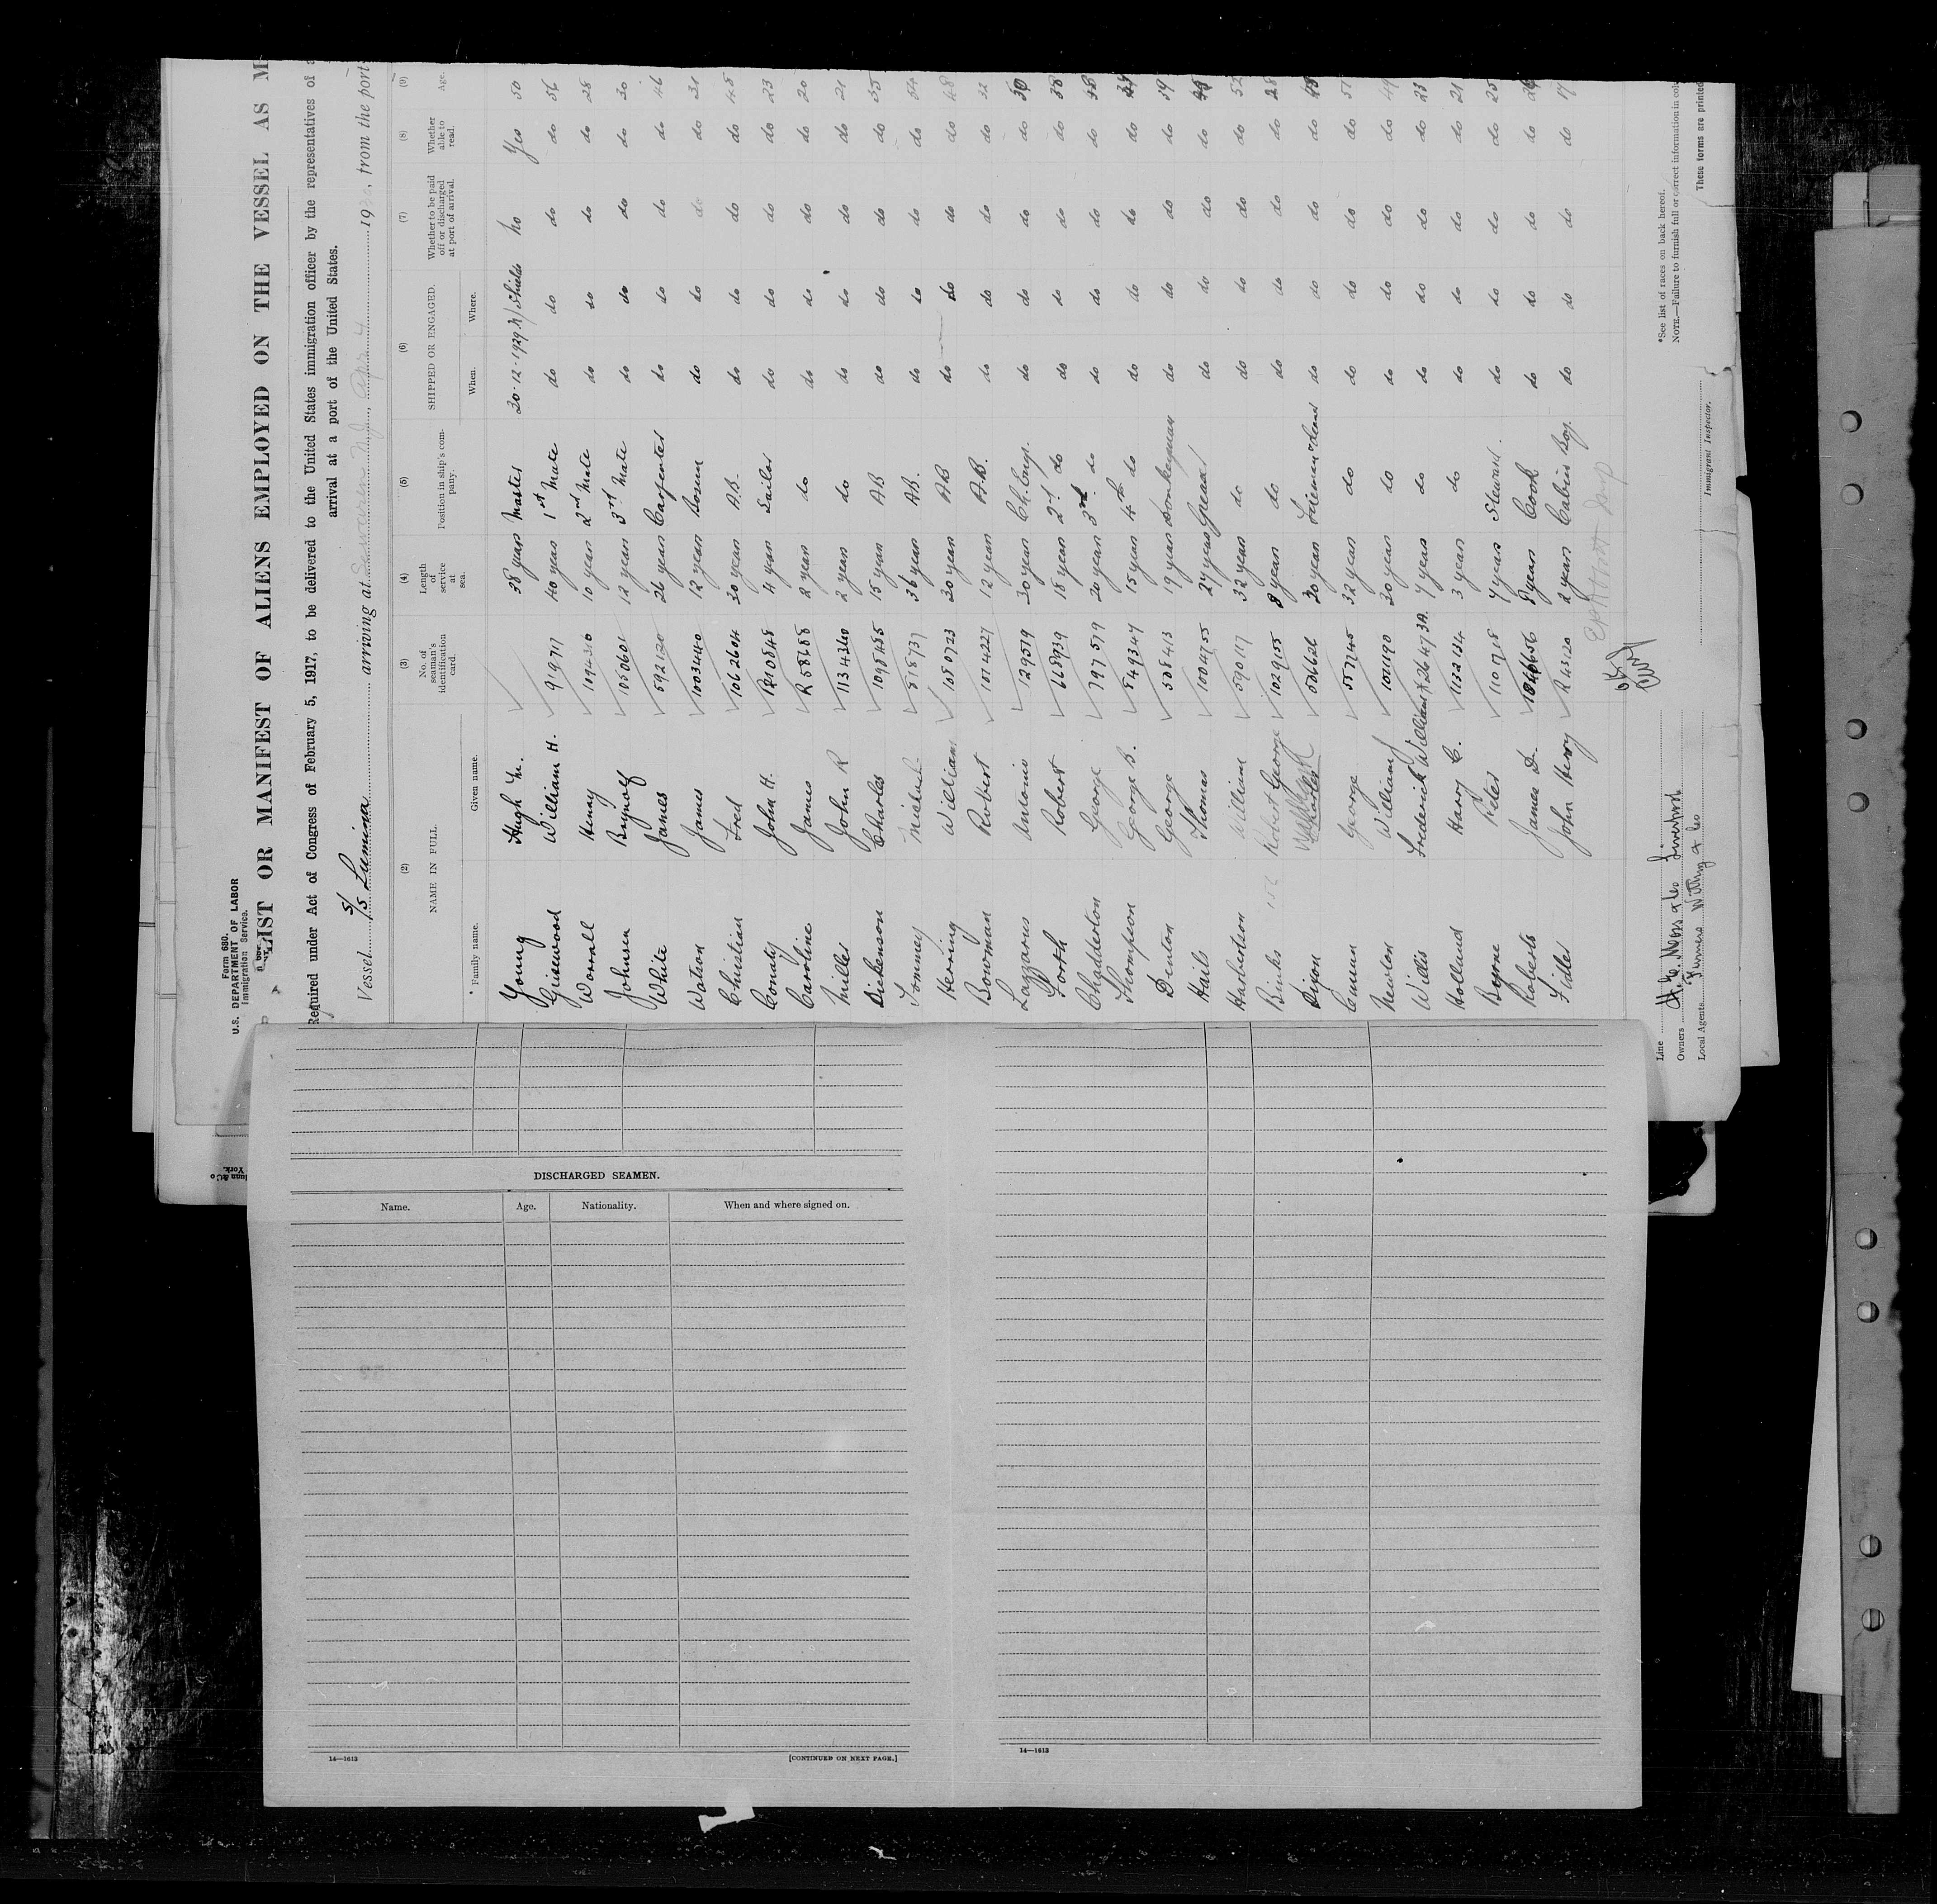 Form 680.
U.S. DEPARTMENT OF LABOR
Immigration Service.
LIST OR MANIFEST OF ALIENS EMPLOYED ON THE VESSEL AS M
Required under Act of Congress of February 5, 1917, to be delivered to the United States immigration officer by the representatives of a
arrival at a port of the United States.
Vessel S/S Lumina arriving at Sewaren N.J., Apr 4 1930, from the port
(2) (3) (4) (5) (6) (7) (8) (9)
NAME IN FULL. No. of seaman's identification card. Length of service at sea. Position in ship's company. SHIPPED OR ENGAGED. Whether to be paid off or discharged at port of arrival. Whether able to read. Age.
Family name. Given name. When. Where.
Young Hugh M. 38 years Master 20-12-1929 N/Shields no Yes 50
Gisewood William H. 919711 40 years 1st Mate do do do do 56
Worrall Henry 1094316 10 years 2nd Mate do do do do 28
Johnsen Brynolf 1050601 12 years 3rd Mate do do do do 30
White James 592120 26 years Carpenter do do do do 46
Watson James 1003440 12 years Bosun do do do do 31
Christian Fred 1062604 30 years A.B. do do do do 48
Conaty John H. 4 years Sailor do do do do 23
Caroline James R 58688 2 years do do do do do 20
Miller John R 1134340 2 years do do do do do 21
Dickenson Charles 1098485 15 years AB do do do do 35
Tommey Michael 818731 36 years AB. do do do do 54
Herring William 1080723 30 years AB do do do do 48
Bowman Robert 1074227 12 years A.B. do do do do 32
Lazzarus Antonio 1129579 30 years Ch. Engr. do do do do
Forth Robert 668939 18 years 2nd do do do do do 38
Chadderton George 797579 20 years 3rd do do do do do
Thompson George B. 849347 15 years 4th do do do do do
Denton George 508413 19 years Donkeyman do do do do 39
Hails Thomas 1004755 27 years Greaser do do do do
Harbertson William 590117 32 years do do do do do 52
Binks Robert George 1029155 8 years do do do do do 28
Dixon Charles 506626 30 years Fireman do do do do
Curran George 557745 32 years do do do do do 51
Newton William 1011190 30 years do do do do do 49
Willis Frederick William 7 years do do do do do 23
Holland Harry C. 1132134 3 years do do do do do 21
Byrne Peter 110718 7 years Steward. do do do do 25
Roberts James D. 8 years Cook do do do do
Fidler John Henry R 43120 2 years Cabin Boy. do do do do 17
Line
Owners H.E. Moss & Co Liverpool
Local Agents Furness Withy & Co
Immigrant Inspector.
*See list of races on back hereof.
NOTE.—Failure to furnish full or correct information in colu
These forms are printed
DISCHARGED SEAMEN.
Name. Age. Nationality. When and where signed on.
14—1613 [CONTINUED ON NEXT PAGE.]
14—1613